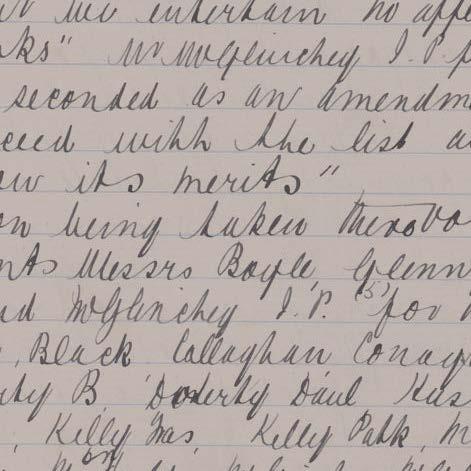 we entertain no
" Mr McGlinchey J.P.
seconded as an amendm
ceed with the list
its merits"
on being taken there vo
nts Messrs Boyle, Glenn
nd McGlinchey J.P. (5) for
, Black Callaghan Conag
rty B. Doherty Danl
, Kelly Jas Kelly Patk, M